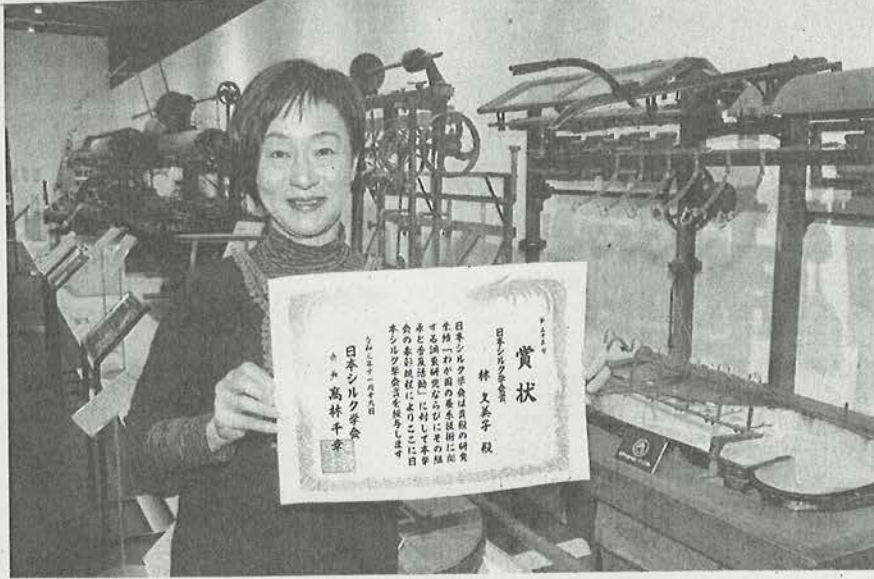 賞状
日本シルク学会賞
林 久美子 殿
日本シルク学会は貴殿の研究
業績「わが国の養糸技術に関
する調査研究ならびにその継
承と普及活動」に対して本学
会の表彰規程によりここに日
本シルク学会賞を授与します
日本シルク学会
会長 髙林千幸